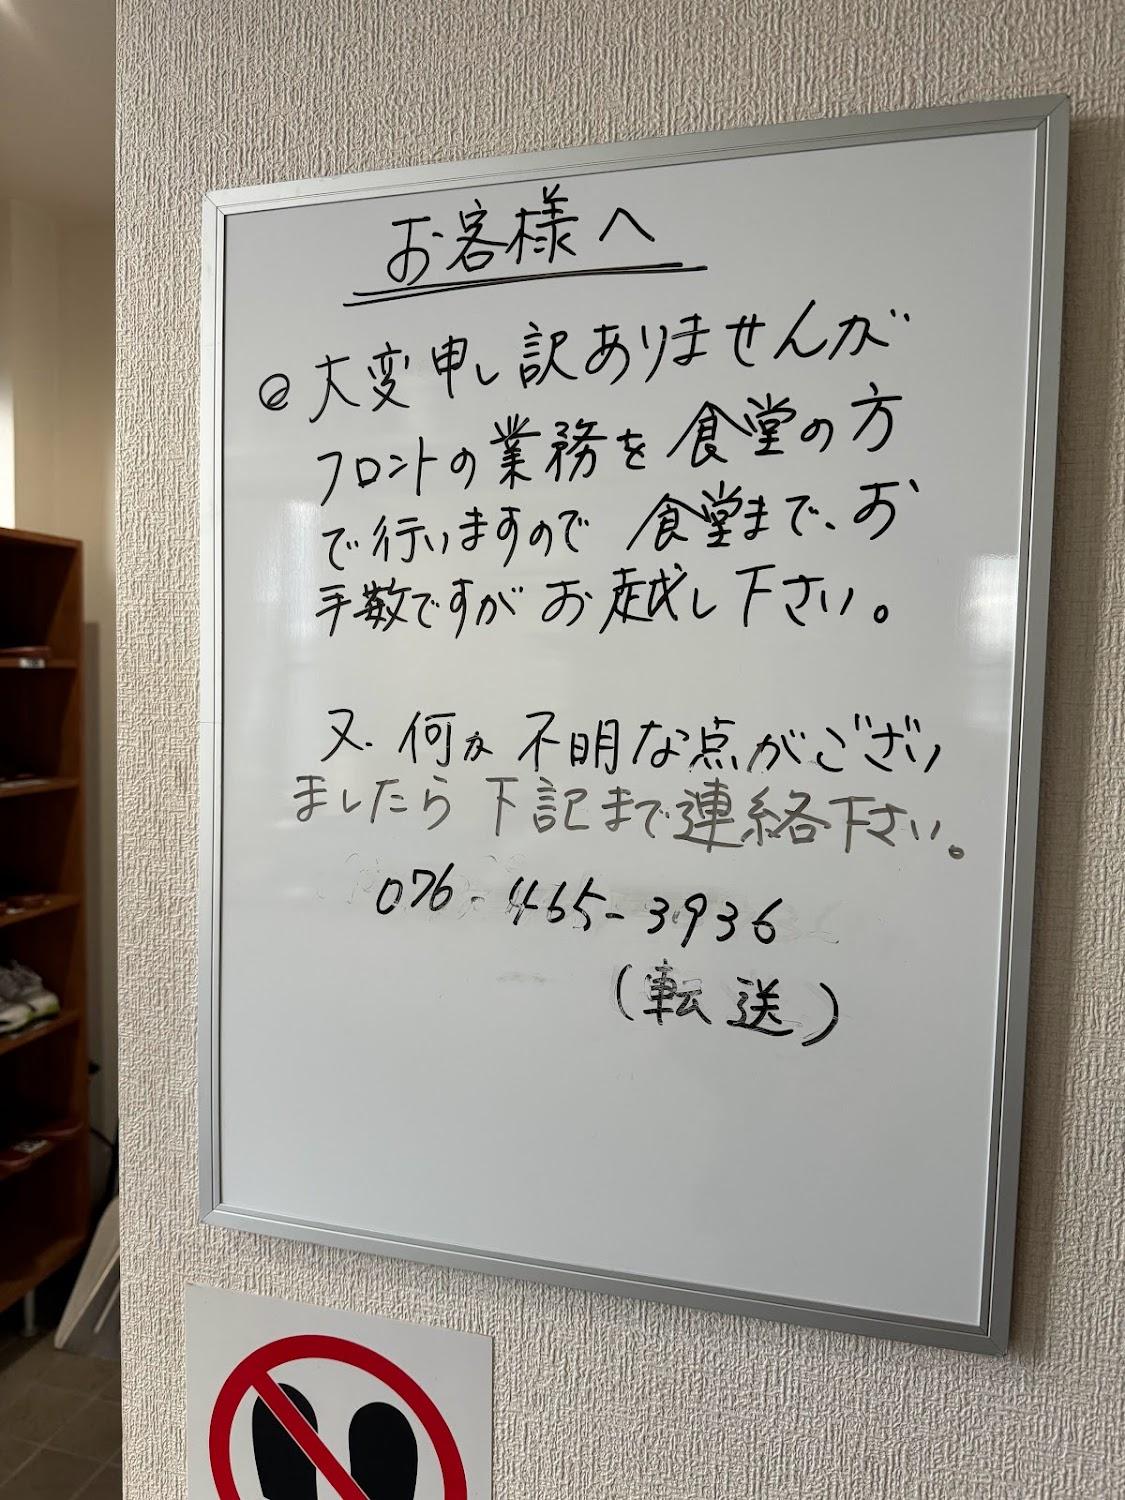 お客様へ
◎大変申し訳ありませんが
フロントの業務を食堂の方
で行いますので 食堂まで、お
手数ですがお越し下さい。
又、何か不明な点がござい
ましたら下記まで連絡下さい。
076-465-3936
(転送)